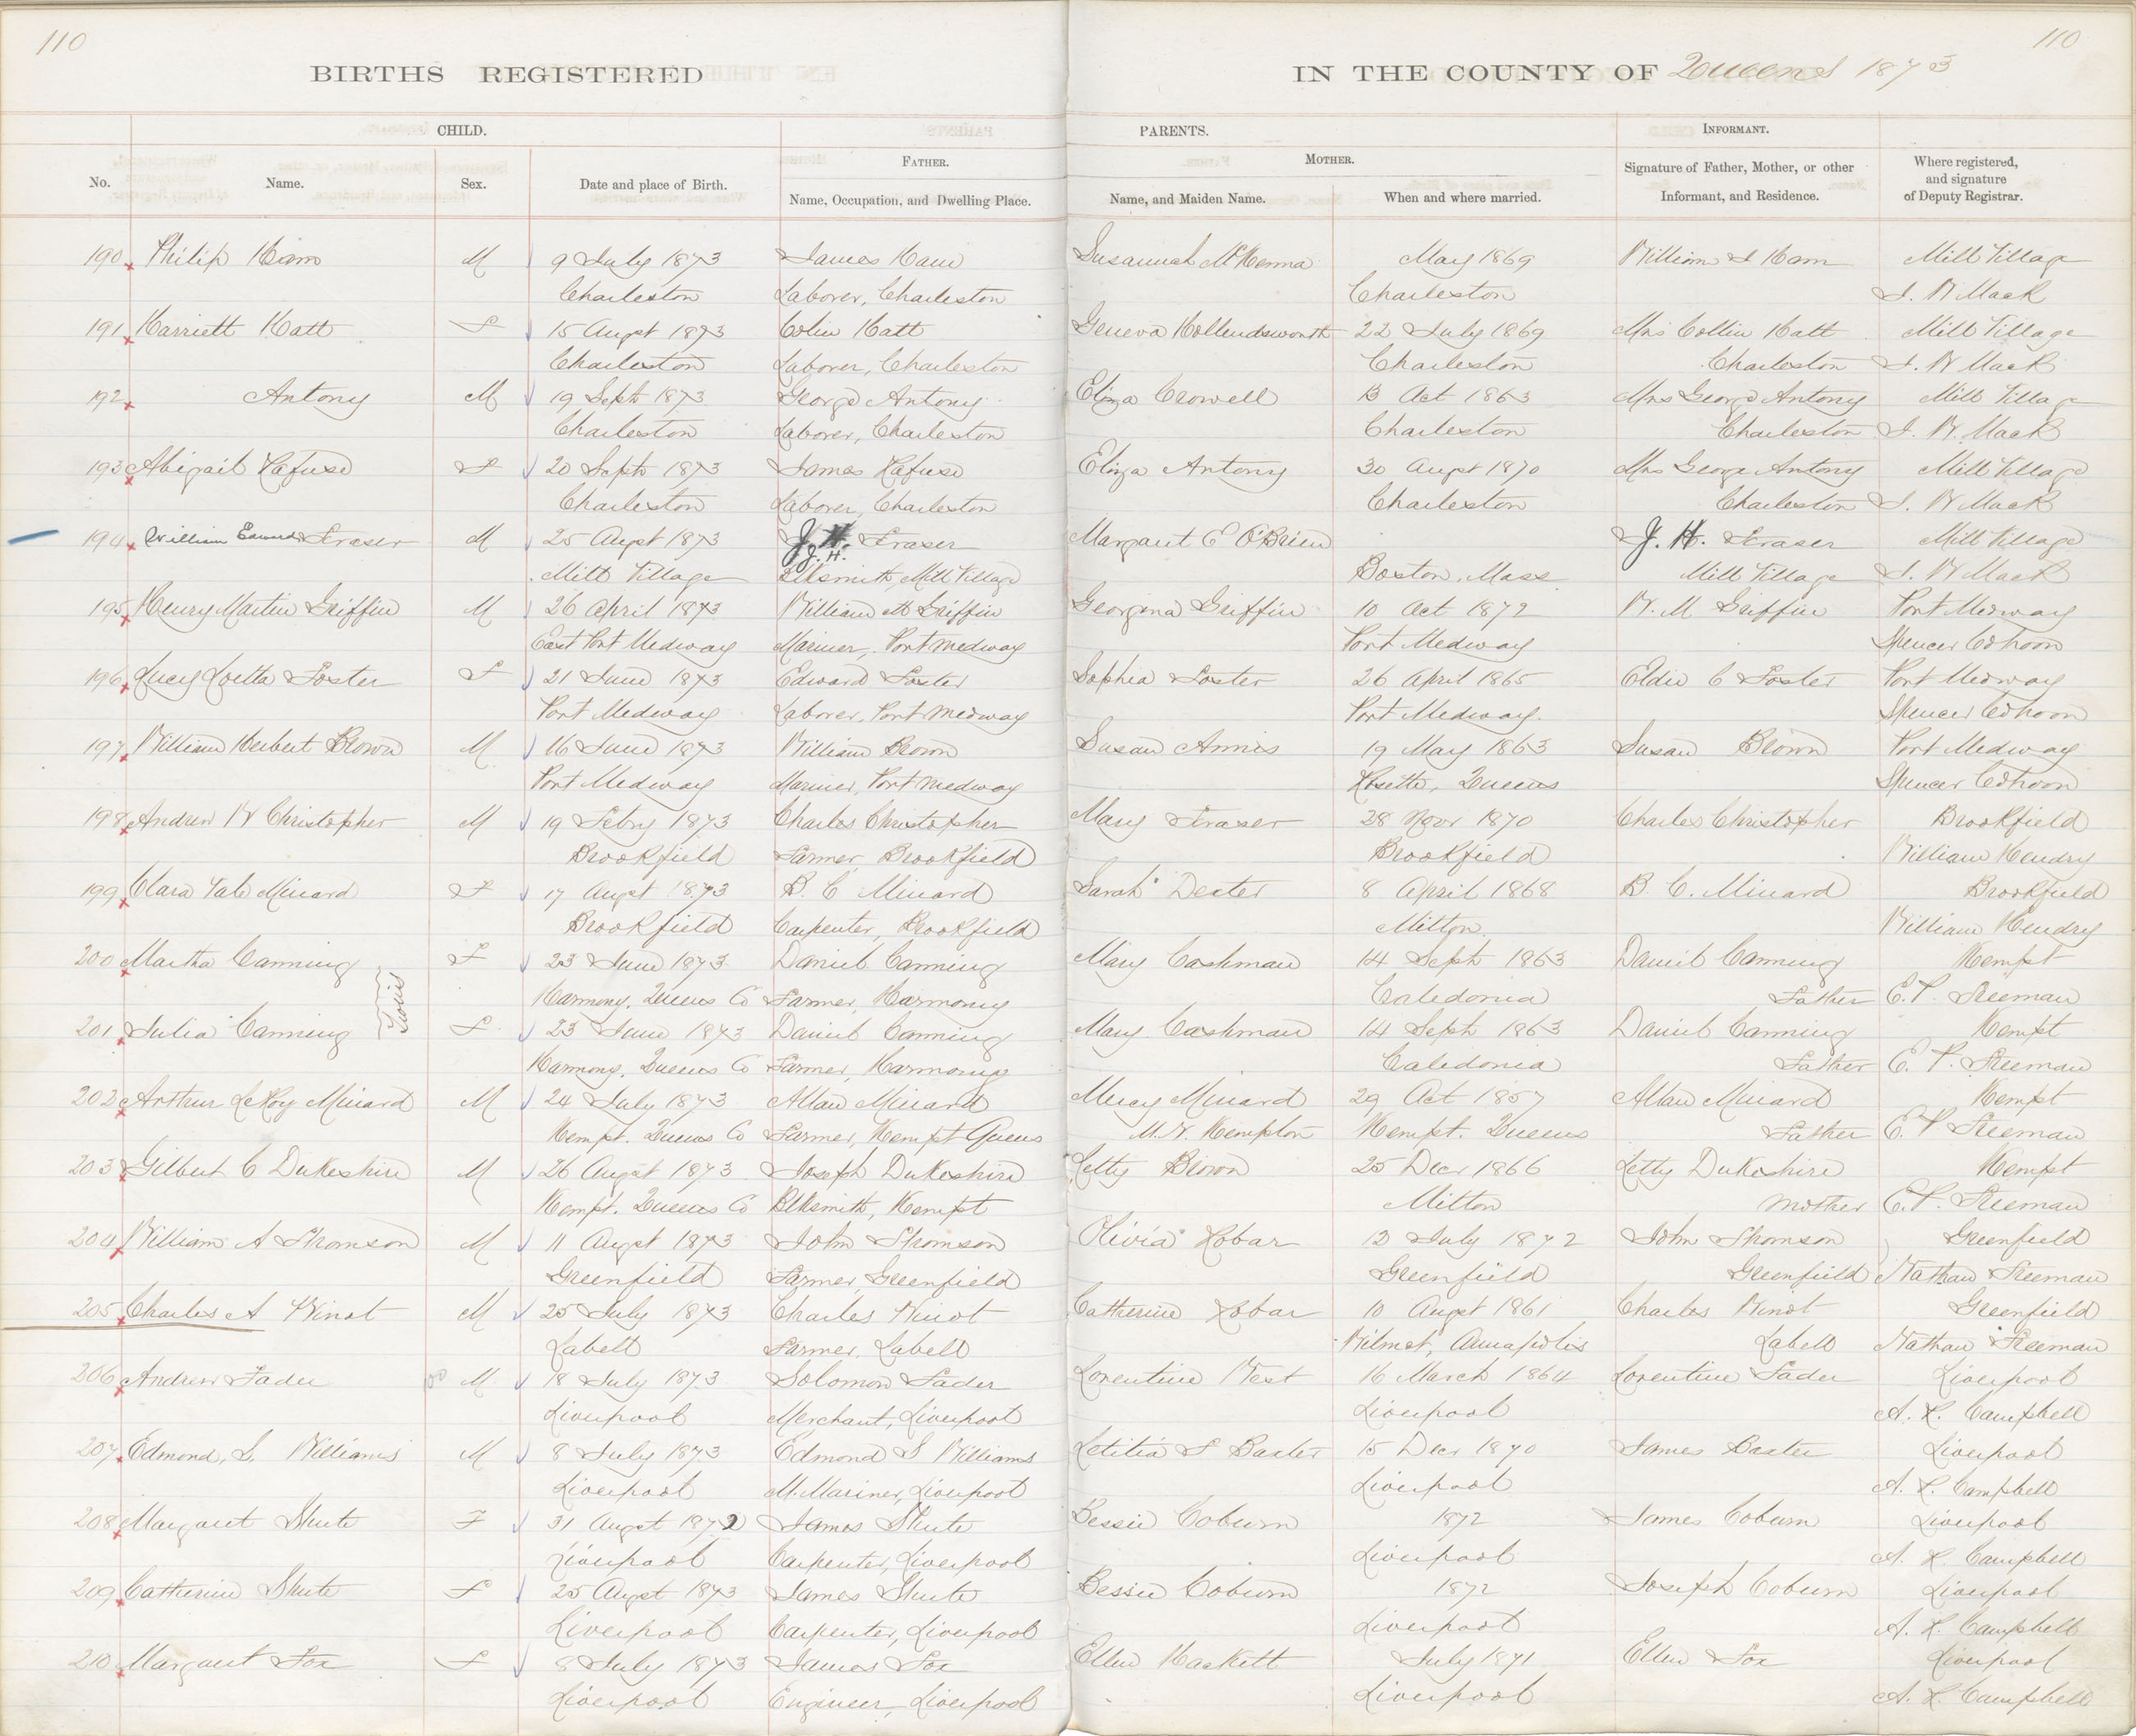 110
110
BIRTHS REGISTERED
IN THE COUNTY OF Queens 1873
CHILD.
PARENTS.
INFORMANT.
No.
Name.
Sex.
Date and place of Birth.
FATHER.
Name, Occupation, and Dwelling Place.
MOTHER.
Name, and Maiden Name.
When and where married.
Signature of Father, Mother, or other
Informant, and Residence.
Where registered,
and signature
of Deputy Registrar.
190 Philip Ham M 9 July 1873 James Ham Susannah McKenna May 1869 William I Ham Mill Village
Charleston Laborer, Charleston Charleston S. W Mack
191 Harriett Hatt F 15 Augst 1873 Colin Hatt Geneva Hollendsworth 22 July 1869 Mrs Collin Hatt Mill Village
Charleston Laborer, Charleston Charleston Charleston S. W Mack
192 Antony M 19 Sept 1873 George Antony Eliza Crowell 13 Oct 1863 Mrs George Antony Mill Village
Charleston Laborer, Charleston Charleston Charleston S. W. Mack
193 Abigail Rafuse F 20 Sept 1873 James Rafuse Eliza Antony 30 Augst 1870 Mrs George Antony Mill Village
Charleston Laborer, Charleston Charleston Charleston S. W Mack
194 William Edward Fraser M 25 Augst 1873 J. H. Fraser Margaret E O'Brien J. H. Fraser Mill Village
J. H.
Mill Village Blksmith, Mill Village Boston, Mass Mill Village S. W Mack
195 Henry Martin Griffin M 26 April 1873 William M Griffin Georgina Griffin 10 Oct 1872 W. M Griffin Port Medway
East Port Medway Mariner, Port Medway Port Medway Spencer Cohoon
196 Lucy Loetta Foster F 21 June 1873 Edward Foster Sophia Foster 26 April 1865 Eldie C Foster Port Medway
Port Medway Laborer, Port Medway Port Medway. Spencer Cohoon
197 William Herbert Brown M 16 June 1873 William Brown Susan Annis 19 May 1863 Susan Brown Port Medway
Port Medway Mariner, Port Medway Rosette, Queens Spencer Cohoon
198 Andrew W Christopher M 19 Febry 1873 Charles Christopher Mary Fraser 28 Novr 1870 Charles Christopher Brookfield
Brookfield Farmer, Brookfield Brookfield William Hendry
199 Clara Tale Minard F 17 Augst 1873 B. C Minard Sarah Dexter 8 April 1868 B C. Minard Brookfield
Brookfield Carpenter, Brookfield Milton. William Hendry
200 Martha Canning F 23 June 1873 Daniel Canning Mary Cashman 14 Sept 1863 Daniel Canning Kempt
Twins
Harmony, Queens Co Farmer, Harmony Caledonia Father E. P. Freeman
201 Julia Canning F 23 June 1873 Daniel Canning Mary Cashman 14 Sept 1863 Daniel Canning Kempt
Harmony, Queens Co Farmer, Harmony Caledonia Father E. P. Freeman
202 Arthur LeRoy Minard M 24 July 1873 Allan Minard Mercy Minard 29 Oct 1857 Allan Minard Kempt
Kempt. Queens Co Farmer, Kempt Queens M. N. Kempton Kempt. Queens Father E. P Freeman
203 Gilbert C Dukeshire M 26 August 1873 Joseph Dukeshire Letty Brown 25 Decr 1866 Letty Dukeshire Kempt
Kempt. Queens Co Blksmith, Kempt Milton Mother E. P. Freeman
204 William A Thomson M 11 Augst 1873 John Thomson Olivia Hobar 13 July 1872 John Thomson Greenfield
Greenfield Farmer, Greenfield Greenfield Greenfield Nathan Freeman
205 Charles A Winot M 25 July 1873 Charles Winot Catherine Hobar 10 Augst 1861 Charles Winot Greenfield
Labell Farmer, Labell Wilmot, Annapolis Labell Nathan Freeman
206 Andrew Fader M 18 July 1873 Solomon Fader Lorentine West 16 March 1864 Lorentine Fader Liverpool
Liverpool Merchant, Liverpool Liverpool A. L. Campbell
207 Edmond, S. Williams M 8 July 1873 Edmond S Williams Letitia S Baxter 15 Decr 1870 James Baxter Liverpool
Liverpool M. Mariner, Liverpool Liverpool A. L. Campbell
208 Margaret Shute F 31 Augst 1872 James Shute Bessie Coburn 1872 James Coburn Liverpool
Liverpool Carpenter, Liverpool Liverpool A. L. Campbell
209 Catherine Shute F 25 Augst 1873 James Shute Bessie Coburn 1872 Joseph Coburn Liverpool
Liverpool Carpenter, Liverpool Liverpool A. L. Campbell
210 Margaret Fox F 8 July 1873 James Fox Ellen Haskett July 1871 Ellen Fox Liverpool
Liverpool Engineer, Liverpool Liverpool A. L. Campbell